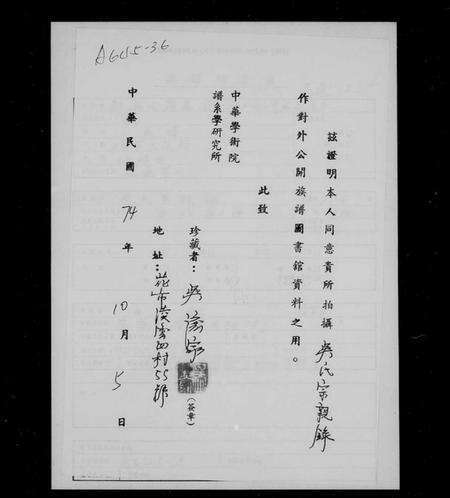 A615-36
茲證明本人同意貴所拍攝吳氏宗親錄
作對外公開族譜圖書館資料之用。
此致
中華學術院
譜系學研究所
珍藏者：吳
（簽章）
地址：花市漢
四村55號
中華民國74年10月5日